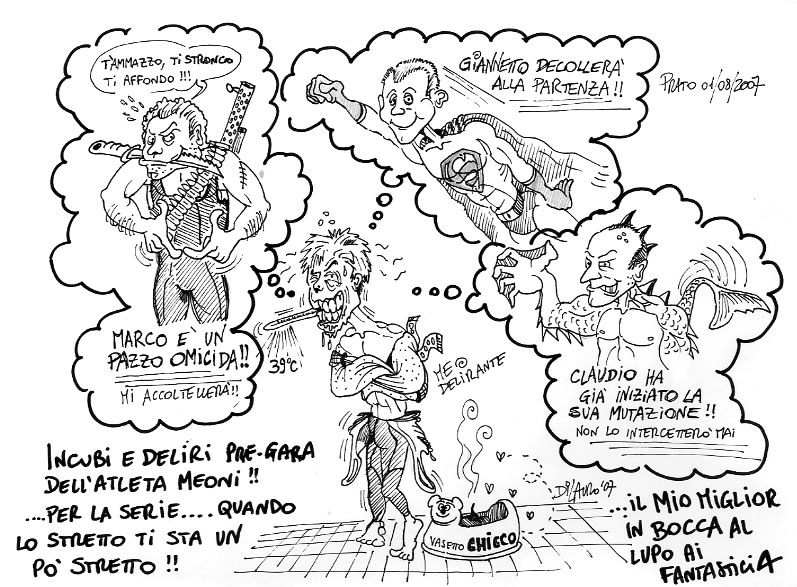 T'AMMAZZO, TI STRONCO
TI AFFONDO !!!
MARCO E' UN
PAZZO OMICIDA!!
MI ACCOLTELLERA'!!
GIANNETTO DECOLLERA'
ALLA PARTENZA!!
PRATO 01/08/2007
CLAUDIO HA
GIÀ INIZIATO LA
SUA MUTAZIONE!!
NON LO INTERCETTERO' MAI
39°C
MEO
DELIRANTE
INCUBI E DELIRI PRE-GARA
DELL'ATLETA MEONI !!
....PER LA SERIE.... QUANDO
LO STRETTO TI STA UN
PO' STRETTO !!
VASETTO CHICCO
DI LAURO '07
...IL MIO MIGLIOR
IN BOCCA AL
LUPO AI
FANTASTICI 4